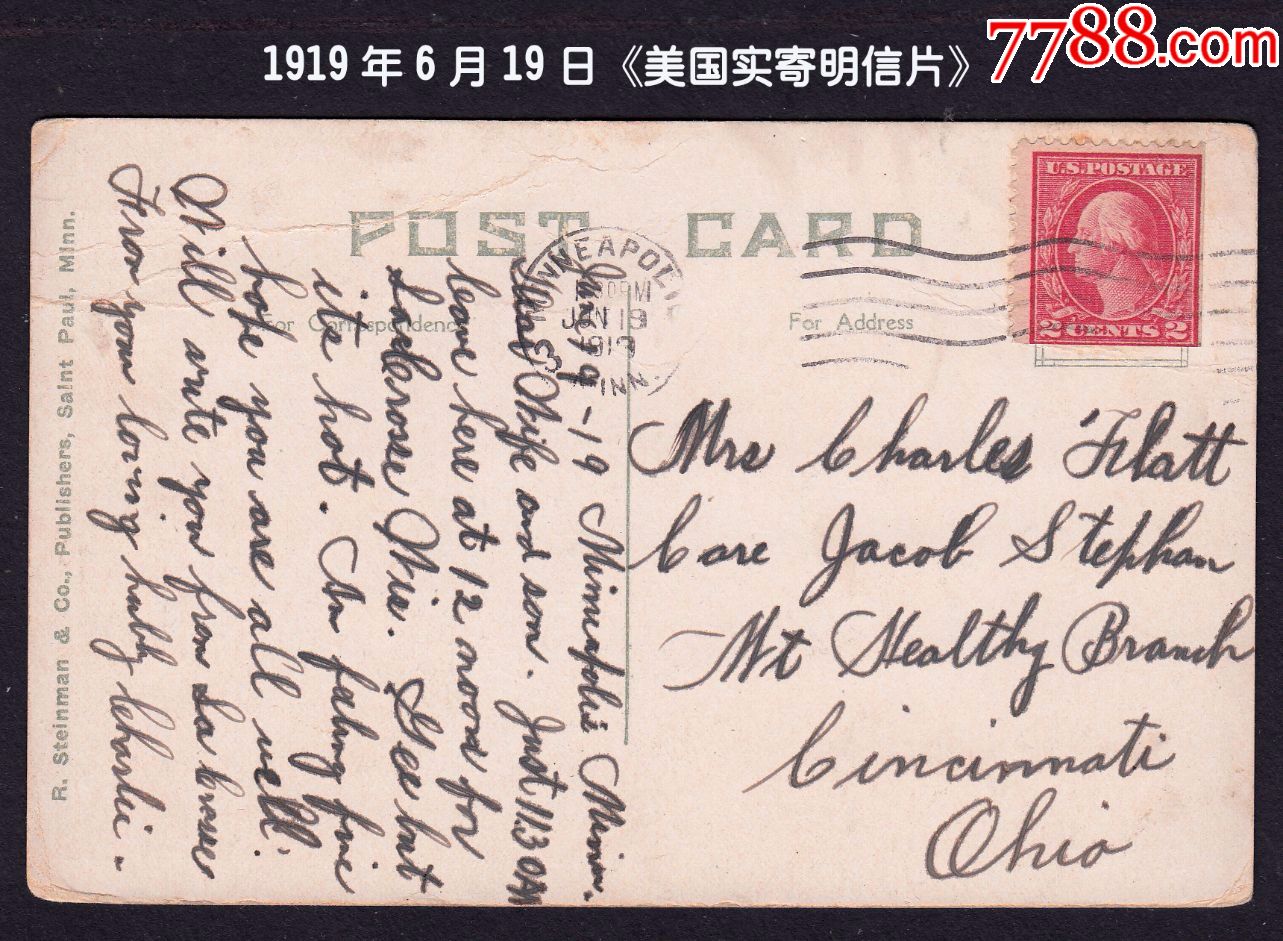 1919年6月19日《美国实寄明信片》
7788.com
POST CARD
For Correspondence
For Address
U.S. POSTAGE
2 CENTS 2
MINNEAPOLI
30PM
19
1919
MINN.
19 - 19 Minneapolis Minn.
Dear Wife and son. Just 11.30 AM
leave here at 12 noon for
LaCrosse Wis. Gee but
its hot. Am feeling fine
hope you are all well.
Will write you from La Crosse
From your loving hubby Charlie -
Mrs Charles Flatt
Care Jacob Stephan
Mt Healthy Branch
Cincinnati
Ohio
R. Steinman & Co., Publishers, Saint Paul, Minn.